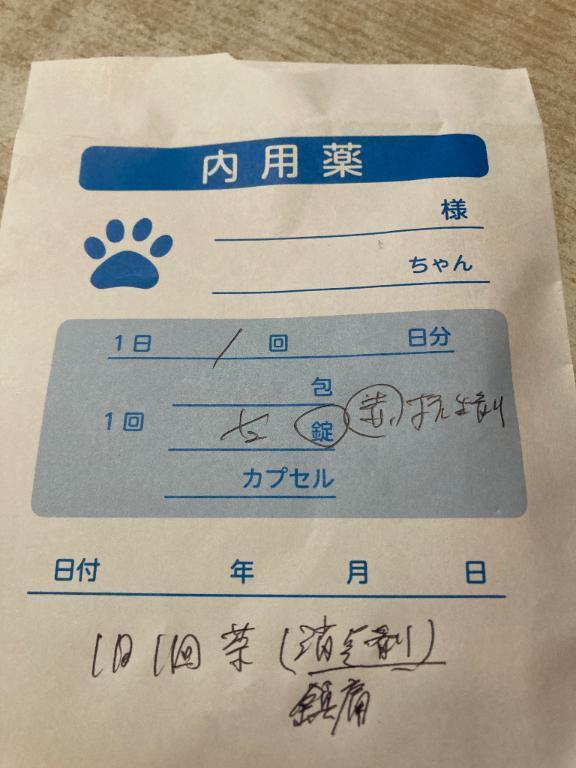 内用薬
様
ちゃん
1日 1 回 日分
包
1回 錠 赤 抗生剤
カプセル
日付 年 月 日
1日1回 薬 (消炎剤)
鎮痛